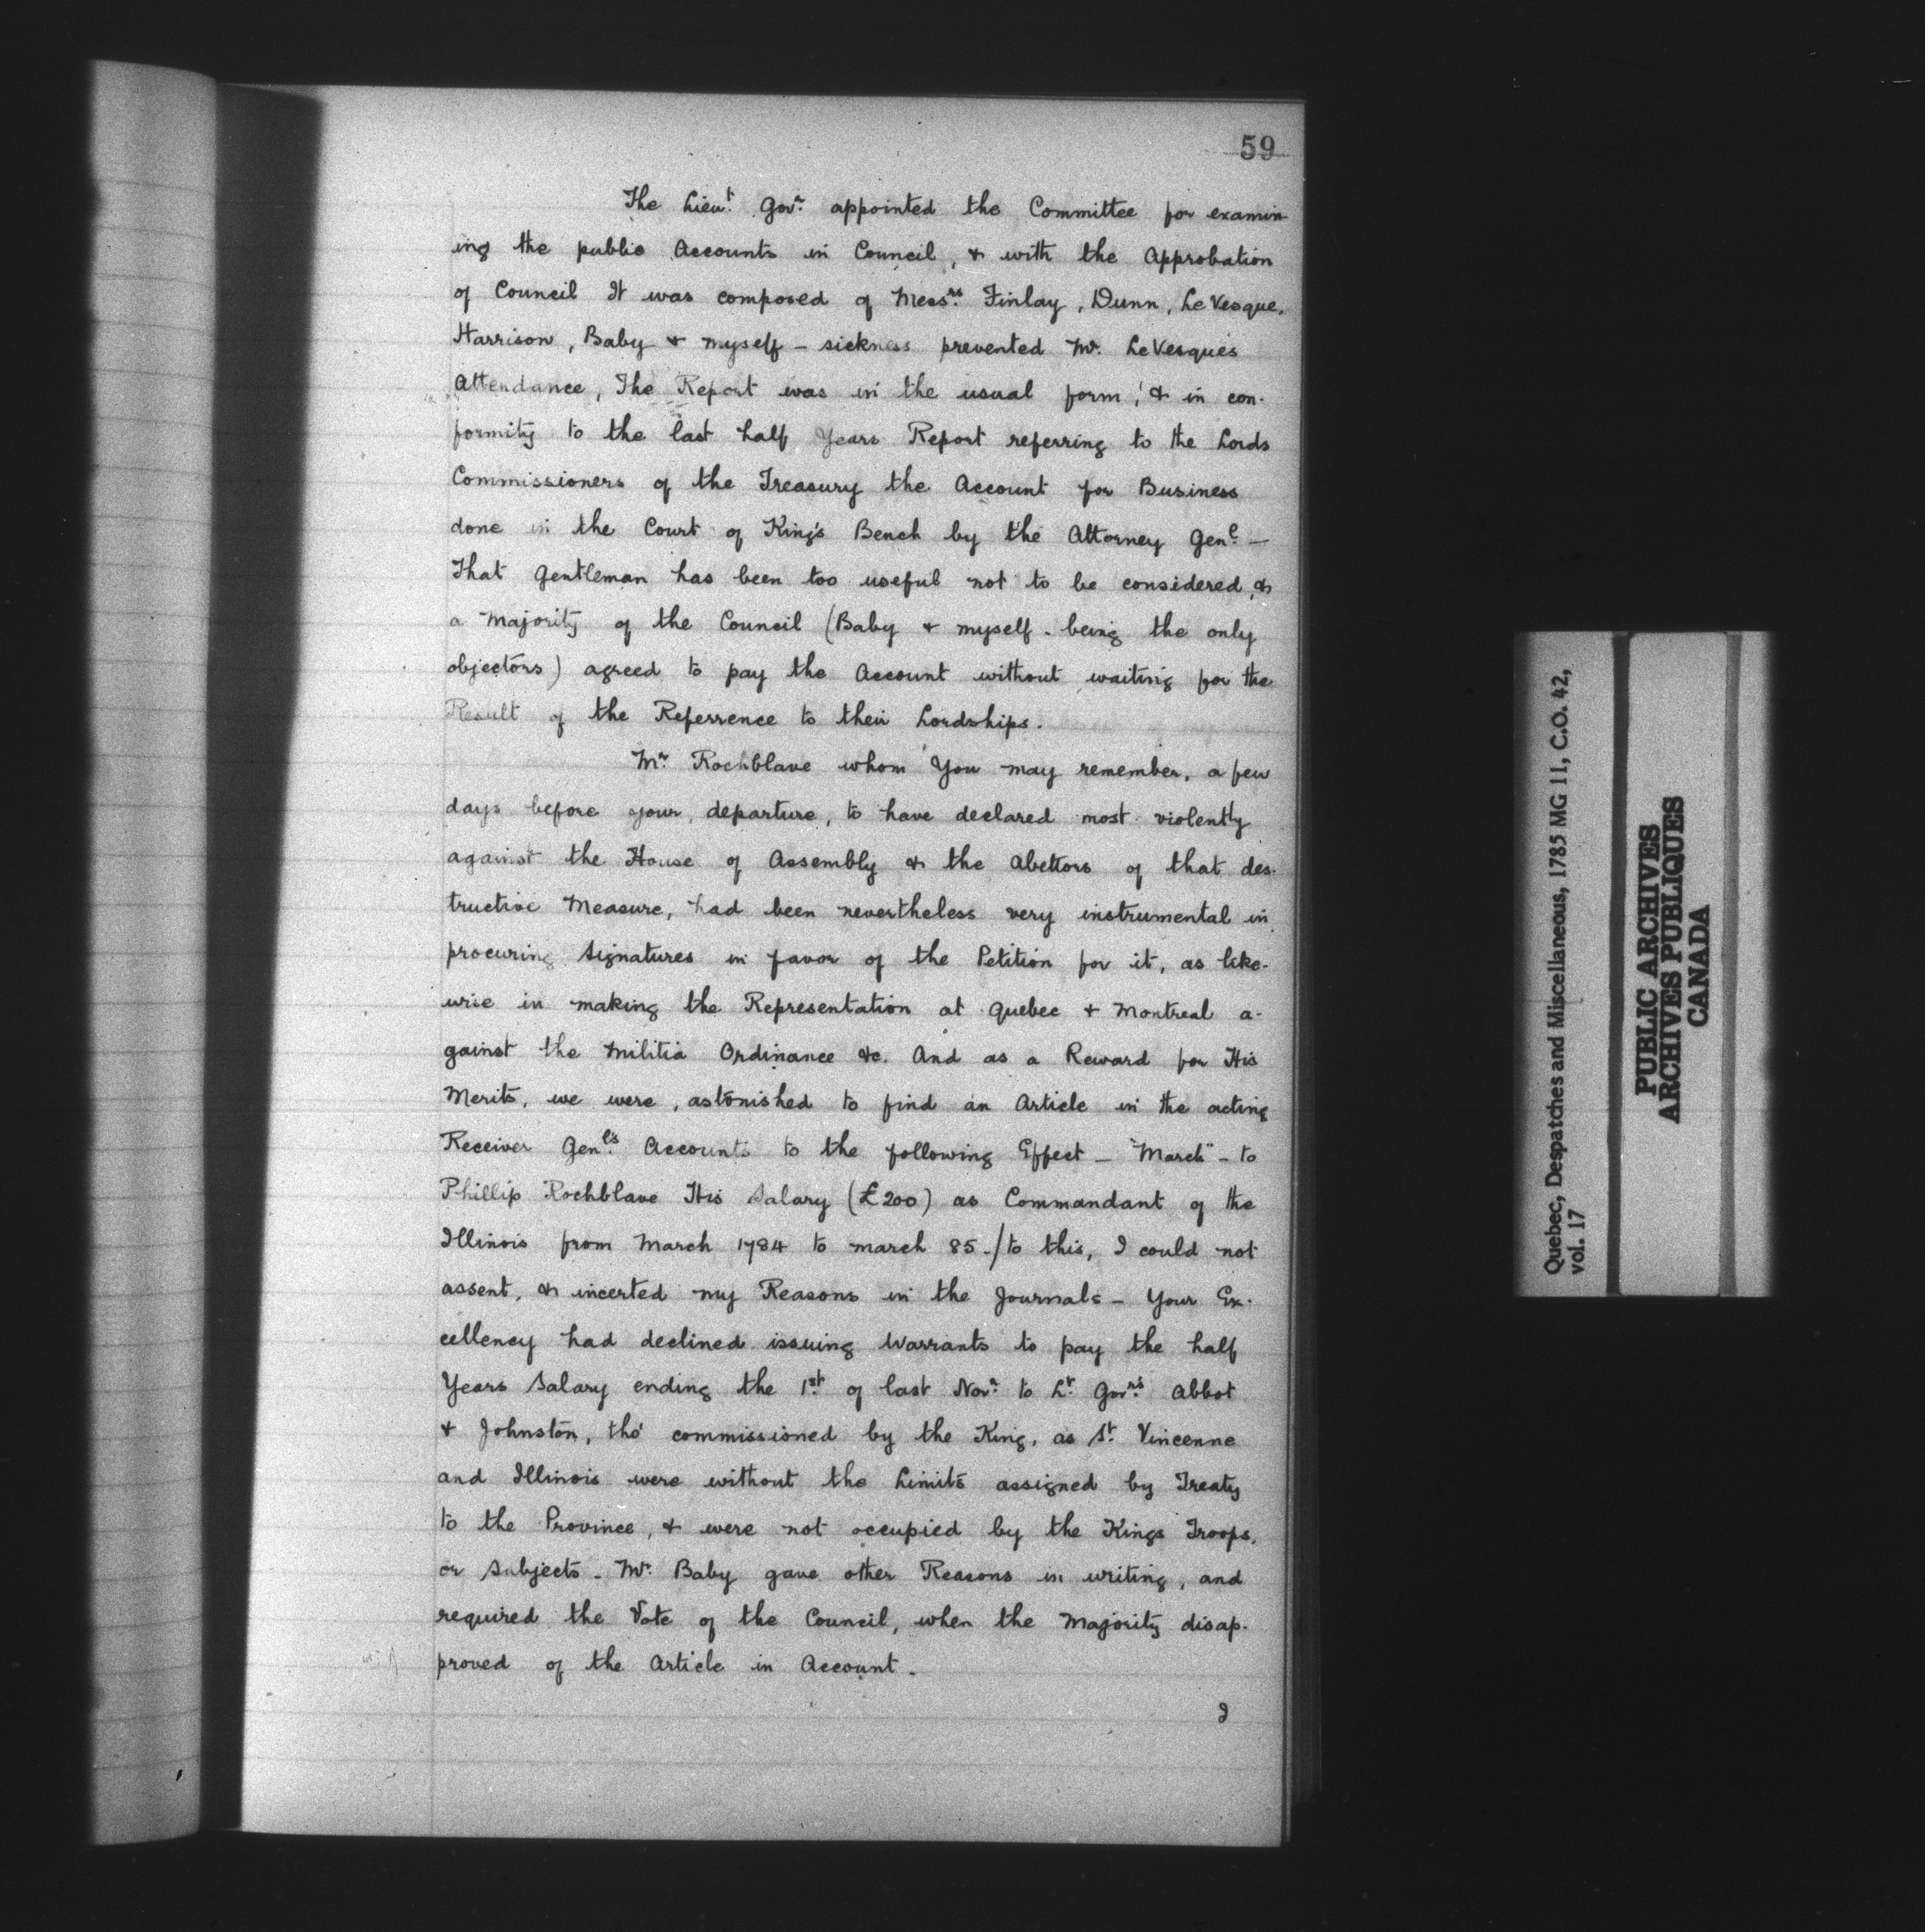 59
The Lieut. Govr. appointed the Committee for examin-
ing the public Accounts in Council, & with the Approbation
of Council It was composed of Messrs. Finlay, Dunn, Le Vesque,
Harrison, Baby & myself - sickness prevented Mr. LeVesques
Attendance, The Report was in the usual form, & in con-
formity to the last half Years Report referring to the Lords
Commissioners of the Treasury the Account for Business
done in the Court of King's Bench by the Attorney Genl. —
That Gentleman has been too useful not to be considered, &
a Majority of the Council (Baby & myself - being the only
objectors) agreed to pay the Account without waiting for the
Result of the Referrence to their Lordships.
Mr. Rochblave whom You may remember, a few
days before your departure, to have declared most violently
against the House of Assembly & the Abettors of that des-
tructive Measure, had been nevertheless very instrumental in
procuring Signatures in favor of the Petition for it, as like-
wise in making the Representation at Quebec & Montreal a-
gainst the Militia Ordinance &c. And as a Reward for His
Merits, we were, astonished to find an Article in the acting
Receiver Genl's. Accounts to the following Effect — "March" - to
Phillip Rochblave His Salary (£200) as Commandant of the
Illinois from March 1784 to march 85 -/to this, I could not
assent, & incerted my Reasons in the Journals - Your Ex-
cellency had declined issuing Warrants to pay the half
Years Salary ending the 1st. of last Novr. to Lt. Govrs. Abbot
& Johnston, tho' commissioned by the King, as St. Vincenne
and Illinois were without the Limits assigned by Treaty
to the Province, & were not occupied by the Kings Troops,
or Subjects - Mr. Baby gave other Reasons in writing, and
required the Vote of the Council, when the Majority disap-
proved of the Article in Account.
I
Quebec, Despatches and Miscellaneous, 1785 MG 11, C.O. 42,
vol. 17
PUBLIC ARCHIVES
ARCHIVES PUBLIQUES
CANADA